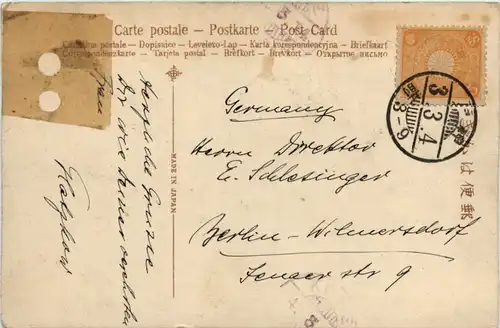 Carte postale – Postkarte – Post Card
Cartolina postale – Dopisnice – Levelezo-Lap – Karta korespondencyjna – Briefkaart
Correspondenzkarte – Tarjeta postal – Brefkort – Brevkort – Открытое письмо
Germany
Herrn Direktor
E. Schlesinger
Berlin–Wilmersdorf
Jenaer str 9
Herzliche Grüsse
Dir wie Deiner verehrten
Frau
MADE IN JAPAN
3 3 4
8-9
郵便は